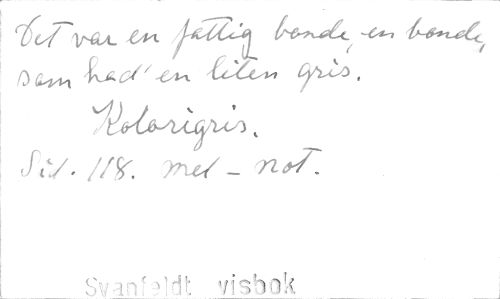 Det var en fattig bonde, en bonde,
som had' en liten gris.
Kolorigris.
Sid. 118. mel - not.
Svanfeldt visbok